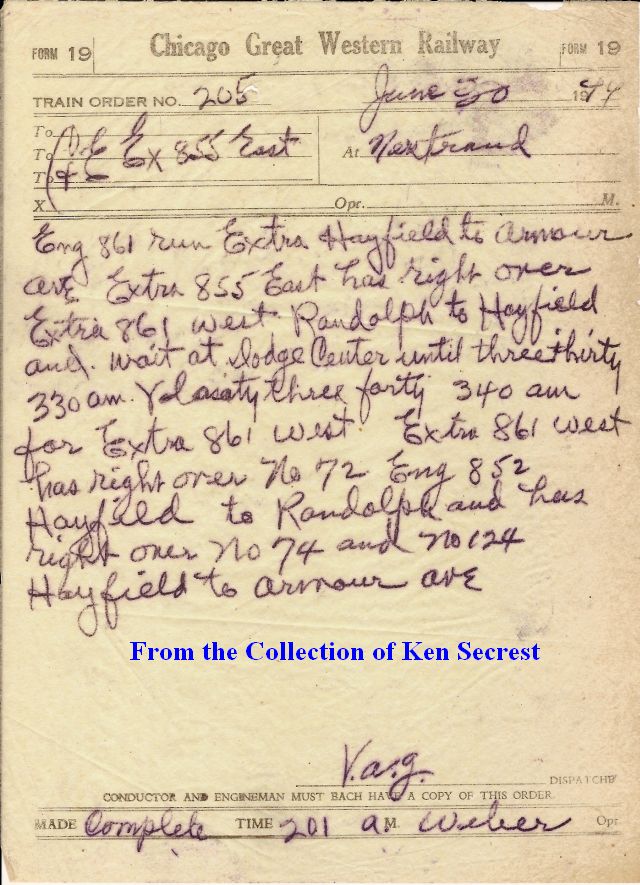 FORM 19 Chicago Great Western Railway FORM 19
TRAIN ORDER NO. 205 June 30 1944
To
To C & E Ex 855 East At Nerstrand
To
X Opr. M.
Eng 861 run Extra Hayfield to Armour
ave Extra 855 East has right over
Extra 861 west Randolph to Hayfield
and wait at Dodge Center until three thirty
330 am Vlasaty three forty 340 am
for Extra 861 west Extra 861 west
has right over No 72 Eng 852
Hayfield to Randolph and has
right over No 74 and No 124
Hayfield to Armour ave
From the Collection of Ken Secrest
V.a.g.
DISPATCHE
CONDUCTOR AND ENGINEMAN MUST EACH HAVE A COPY OF THIS ORDER
MADE Complete TIME 201 a M. Weber Opr